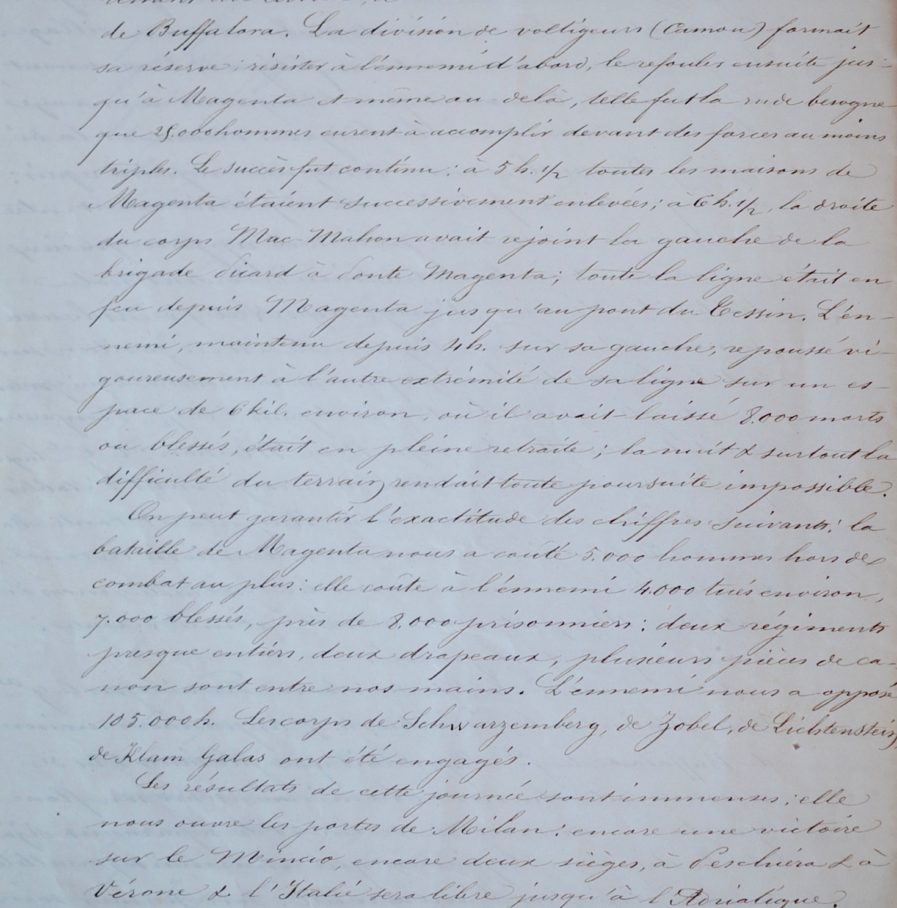 de Buffalora. La division de voltigeurs (Camou) formait
sa réserve: résister à l'ennemi d'abord, le refouler ensuite jus-
qu'à Magenta et même au delà, telle fut la rude besogne
que 25,000 hommes eurent à accomplir devant des forces au moins
triples. Le succès fut continu: à 5 h. 1/2 toutes les maisons de
Magenta étaient successivement enlevées; à 6 h. 1/2, la droite
du corps Mac-Mahon avait rejoint la gauche de la
brigade Picard à Ponte Magenta; toute la ligne était en
feu depuis Magenta jusqu'au pont du Tessin. L'en-
nemi, maintenu depuis 4h. sur sa gauche, repoussé vi-
goureusement à l'autre extrémité de sa ligne sur un es-
pace de 6 kil. environ, où il avait laissé 8.000 morts
ou blessés, était en pleine retraite; la nuit & surtout la
difficulté du terrain rendait toute poursuite impossible.
On peut garantir l'exactitude des chiffres suivants: la
bataille de Magenta nous a coûté 5.000 hommes hors de
combat au plus: elle coûte à l'ennemi 4.000 tués environ,
7.000 blessés, près de 8.000 prisonniers: deux régiments
presque entiers, deux drapeaux, plusieurs pièces de ca-
non sont entre nos mains. L'ennemi nous a opposé
105.000 h. Les corps de Schwarzemberg, de Zobel, de Lichtenstein,
de Klam Galas ont été engagés.
Les résultats de cette journée sont immenses; elle
nous ouvre les portes de Milan: encore une victoire
sur le Mincio, encore deux sièges, à Peschiera & à
Vérone & l'Italie sera libre jusqu'à l'Adriatique.